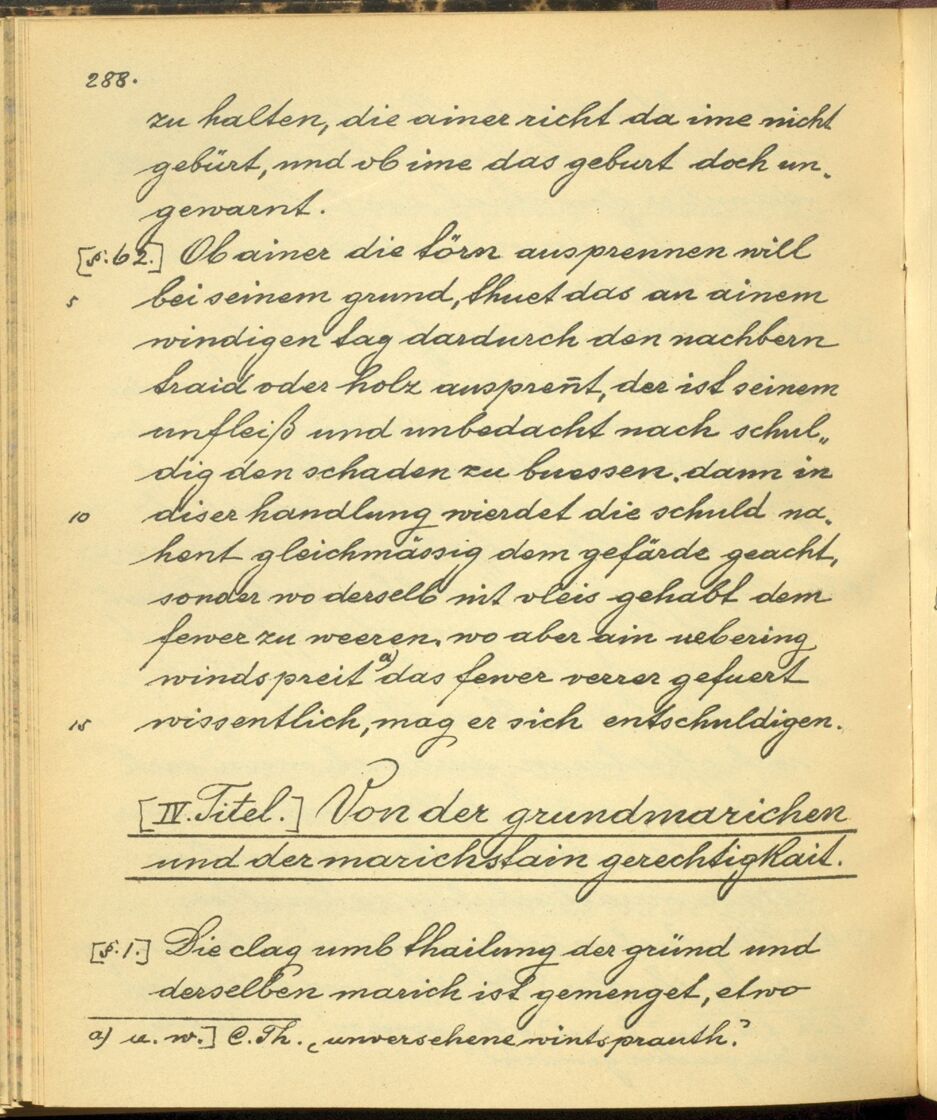 288.
zu halten, die ainer richt da ime nicht
gebürt, und ob ime das geburt doch un-
gewarnt.
[§. 62.] Ob ainer die törn ausprennen will
5 bei seinem grund, thuet das an ainem
windigen tag dardurch den nachbern
traid oder holz auspren̄t, der ist seinem
unfleiß und unbedacht nach schul„
dig den schaden zu buessen. dann in
10 diser handlung wierdet die schuld na-
hent gleichmässig dem gefärde geacht,
sonder wo derselb nit vleis gehabt dem
fewer zu weeren. wo aber ain uebering
windspreit a) das fewer verrer gefuert
15 wissentlich, mag er sich entschuldigen.
[IV. Titel.] Von der grundmarichen
und der marichstain gerechtigkait.
[§. 1.] Die clag umb thailung der gründ und
derselben marich ist gemenget, etwo
a) u. w.] C. Th. „unversehene wintsprauth."